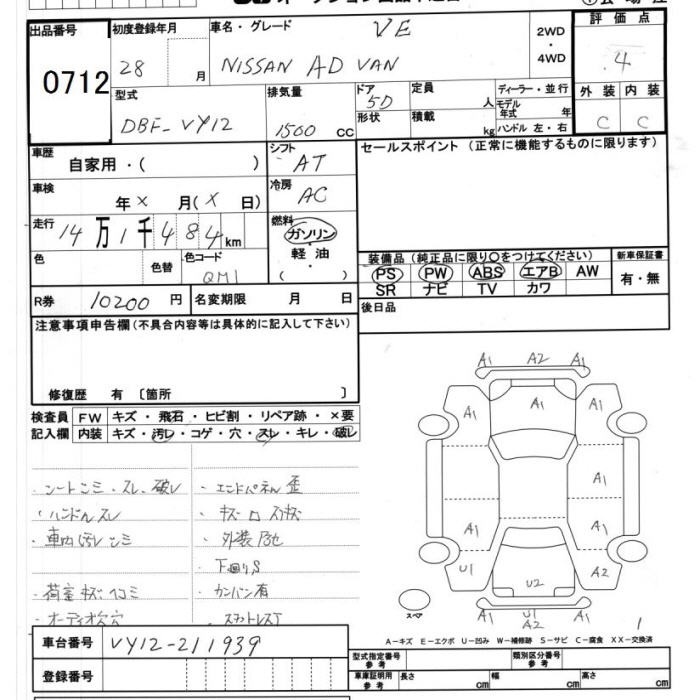 出品番号
0712
初度登録年月
28 月
車名・グレード
VE
NISSAN AD VAN
2WD
・
4WD
評価点
4
外装 内装
C C
型式
DBF-VY12
排気量
1500 CC
ドア
5D
形状
定員
人
積載
kg
ディーラー・並行
モデル年式 年
ハンドル 左・右
車歴
自家用・( )
シフト
AT
セールスポイント(正常に機能するものに限ります)
車検
年 X 月 (X 日)
冷房
AC
走行
14万1千484km
燃料
ガソリン・
軽油・
( )
色
色替
色コード
QM1
装備品(純正品に限り○をつけてください)
PS PW ABS エアB AW
SR ナビ TV カワ
新車保証書
有・無
R券 10200 円
名変期限 月 日
後日品
注意事項申告欄(不具合内容等は具体的に記入して下さい)
修復歴 有〔箇所 〕
検査員
記入欄
FW キズ・飛石・ヒビ割・リペア跡・×要
内装 キズ・汚レ・コゲ・穴・スレ・キレ・破レ
・シートシミ・スレ、破レ
・ハンドルスレ
・車内汚レシミ
・荷室キズヘコミ
・エンドパネル歪
・外装
・下廻りS
・カンバン有
A1 A2 A1
A1 A1 A1
A1
A1 A1
U1 U2 A2
U1
A1 A2
スペア
1
A-キズ E-エクボ U-凹み W-補修跡 S-サビ C-腐食 XX-交換済
車台番号 VY12-211939
登録番号
型式指定番号
参考
類別区分番号
参考
車庫証明用
参考
長さ cm
幅 cm
高さ cm